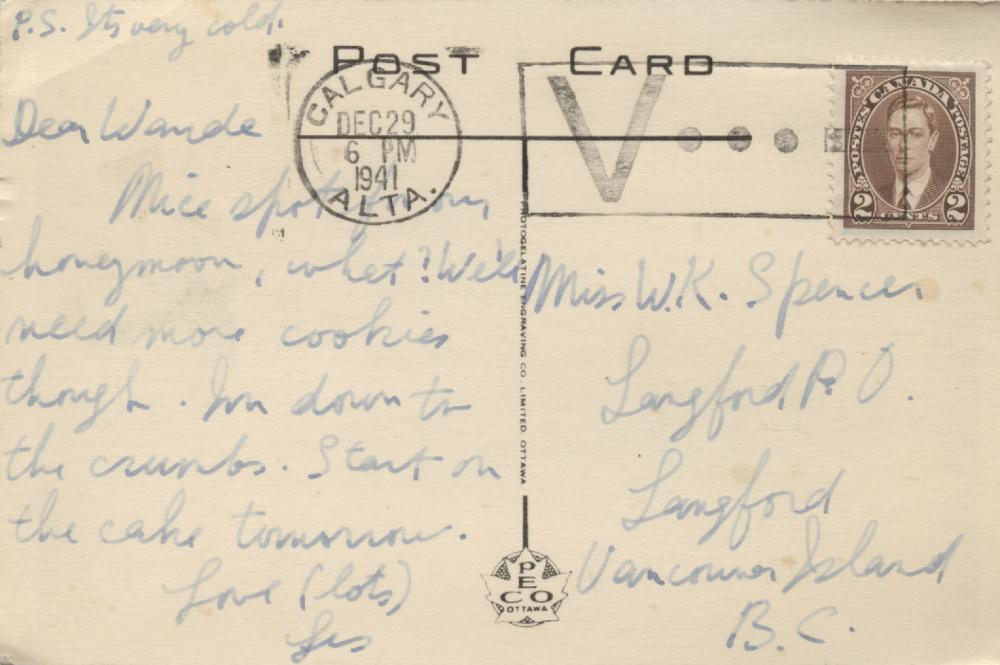 P.S. Its very cold.
POST CARD
CALGARY
DEC 29
6 PM
1941
ALTA.
V
POSTES CANADA POSTAGE
2 CENTS 2
Dear Wande
Nice spot for our
honeymoon, what? We'll
need more cookies
though. I'm down to
the crumbs. Start on
the cake tomorrow.
Love (lots)
Les
PHOTOGELATINE ENGRAVING CO. LIMITED. OTTAWA
PECO
OTTAWA
Miss W.K. Spencer
Langford P.O.
Langford
Vancouver Island
B.C.